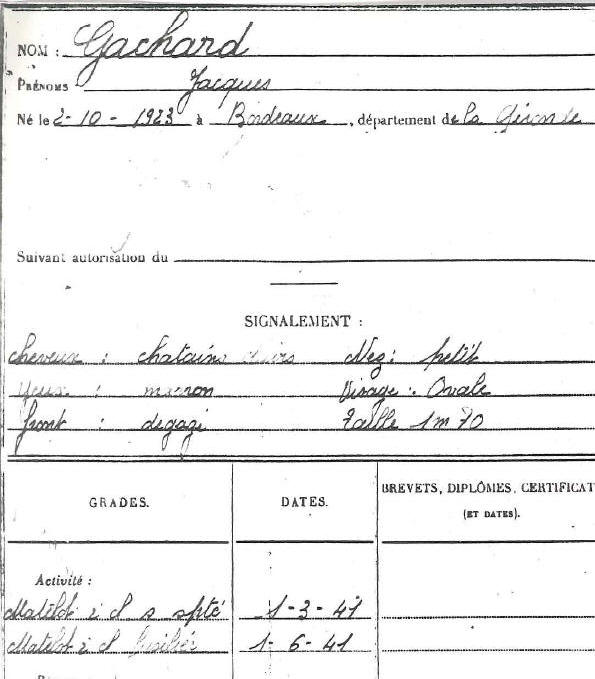 NOM : Gachard
PRÉNOMS Jacques
Né le 2-10-1923 à Bordeaux, département de la Gironde
Suivant autorisation du
SIGNALEMENT :
cheveux : chatains clairs Nez : petit
Yeux : marron Visage : Ovale
front : degagé Taille 1m70
GRADES. DATES. BREVETS, DIPLÔMES, CERTIFICAT
(ET DATES).
Activité :
Matelot 2 cl s spté 1-3-41
Matelot 2 cl fusilier 1-6-41